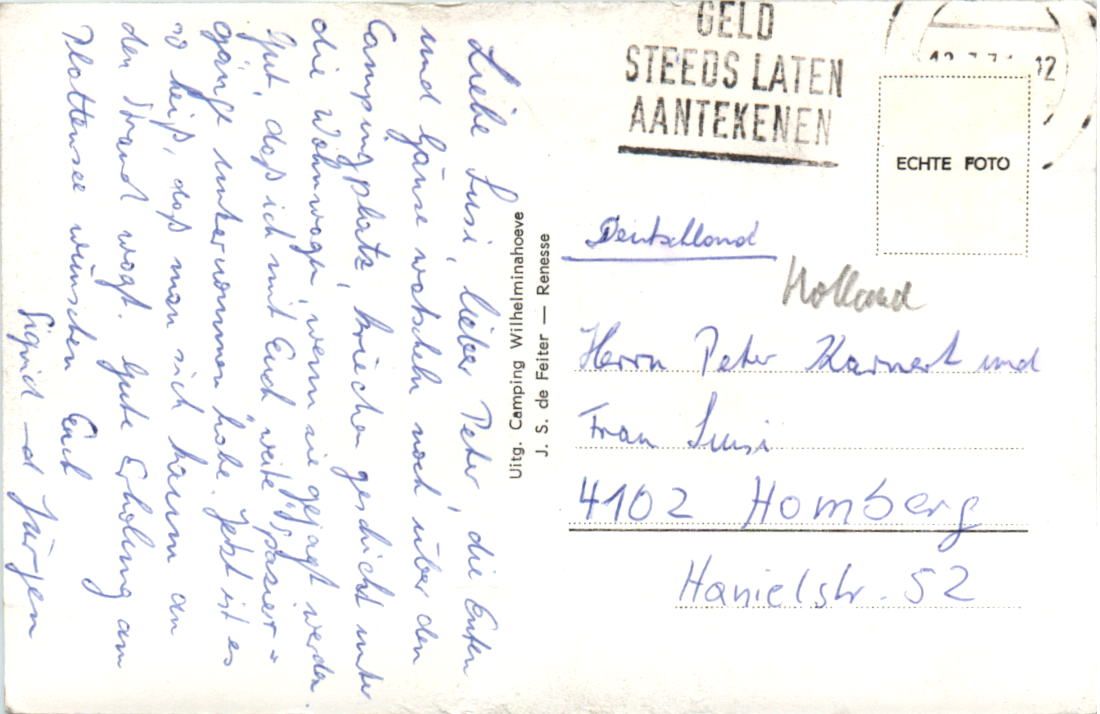 Liebe Susi, lieber Peter, die Enten
und Gänse watscheln noch über den
Campingplatz, kriechen geschickt unter
die Wohnwagen, wenn sie gejagt werden.
Gut, daß ich mit Euch weite Spazier-
gänge unternommen habe. Jetzt ist es
so heiß, daß man sich kaum an
den Strand wagt. Gute Erholung am
Plattensee wünschen Euch
Sigrid und Jürgen
Uitg. Camping Wilhelminahoeve
J. S. de Feiter — Renesse
GELD
STEEDS LATEN
AANTEKENEN
12
ECHTE FOTO
Deutschland
Holland
Herrn Peter Karnert und
Frau Susi
4102 Homberg
Hanielstr. 52